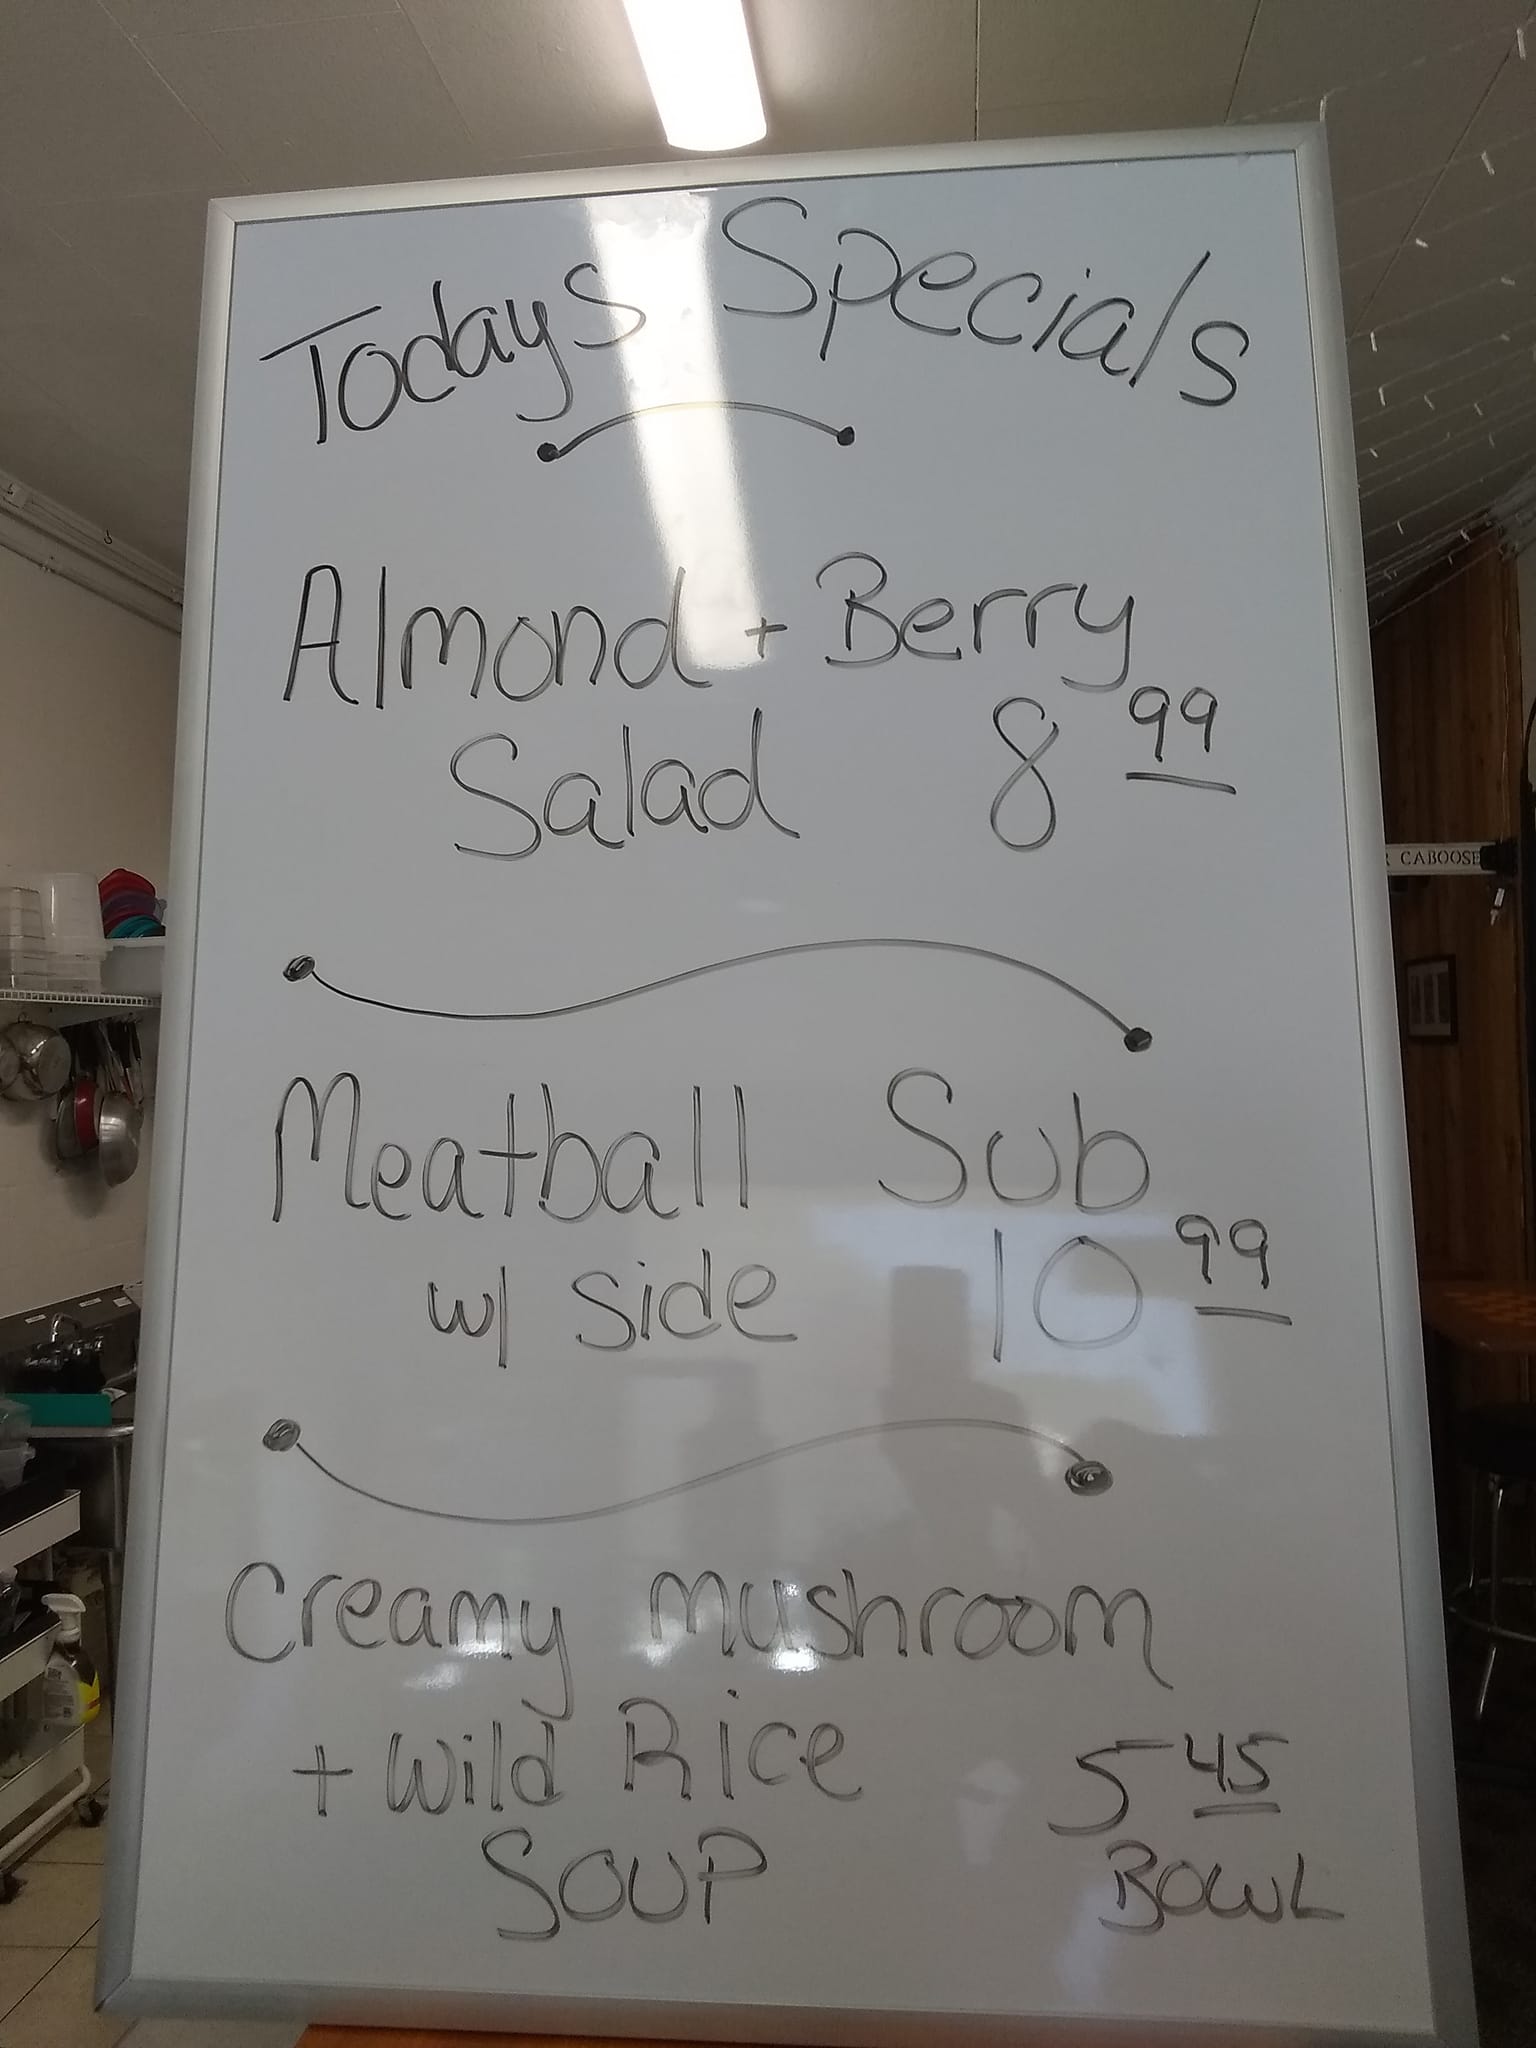 Todays Specials
Almond + Berry
Salad 8 99
Meatball Sub
w/ side 10 99
Creamy mushroom
+ Wild Rice 5 45
SOUP BOWL
CABOOSE